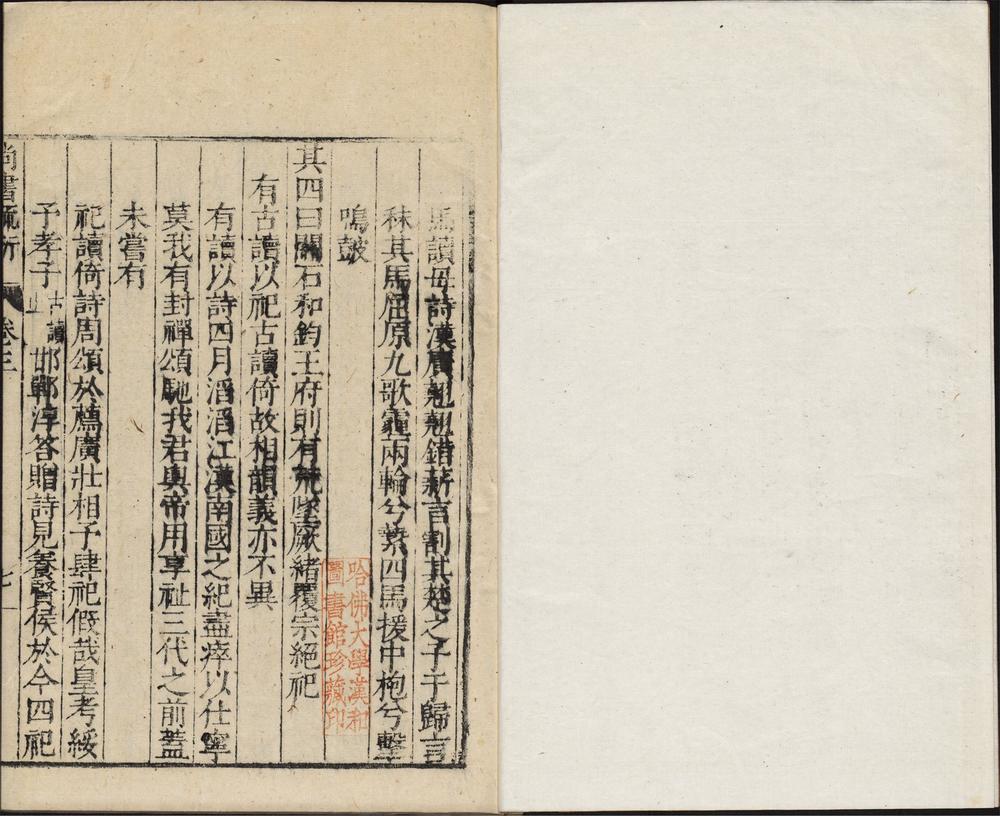 馬讀母詩漢廣翹翹錯薪言割其楚之子于歸言
秣其馬屈原九歌霾兩輪兮縶四馬援中枹兮擊
鳴鼓
其四曰關石和鈞王府則有荒墜厥緒覆宗絕祀
有古讀以祀古讀倚故相韻義亦不異
有讀以詩四月滔滔江漢南國之紀盡瘁以仕寧
莫我有封禪頌馳我君輿帝用享祉三代之前蓋
未嘗有
祀讀倚詩周頌於薦廣壯相予肆祀假哉皇考綏
予孝子古讀止邯鄲淳答贈詩見養賢侯於今四祀
尚書疏衍 卷三 七
哈佛大學漢和
圖書館珍藏印